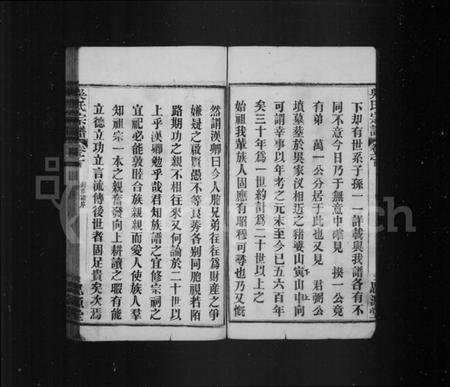 吳氏宗譜
下却有世系子孫一一詳載與我譜各有不
同不意今日乃于無意中確見 揆一公竟
有弟 萬一公分居于此也又見 君弼公
墳墓葬於吳家汉相近之豬婆山寅山申向
可謂幸事以年考之元末至今已五六百年
矣三十年爲一世約計爲二十世以上之
始祖我輩族人固應有昭穆可尋也乃又慨
然謂漢卿曰今人胞兄弟往往爲財產之爭
嫌疑之啟賢愚不等良莠各別同胞視若陌
路期功之親不相往來又何論於二十世以
上乎漢卿勉乎哉君知族譜之宜修宗祠之
宜祀必能敦睦合族親親而愛人使族人羣
知祖宗一本之親奮發向上耕讀之暇有能
立德立功立言流傳後世者固足貴矣次焉
吳氏宗譜
思源堂